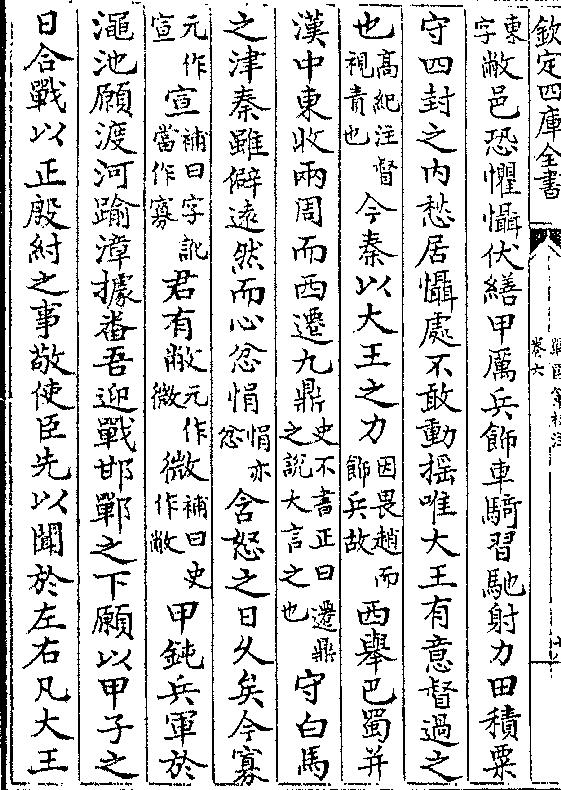 欽定四庫全書
戰國策校注
卷六
東字敝邑恐懼懾伏繕甲厲兵飾車騎習馳射力田積粟
守四封之内愁居懾處不敢動摇唯大王有意督過之
也高紀注督視責也今秦以大王之力因畏趙而飾兵故西舉巴蜀并
漢中東收兩周而西遷九鼎史不書正曰遷鼎之說大言之也守白馬
之津秦雖僻逺然而心忿悁悁亦忿含怒之日久矣今寡
元作宣宣補曰字訛當作寡君有敝元作微微補曰史作敝甲鈍兵軍於
澠池願渡河踰漳據番吾迎戰邯鄲之下願以甲子之
日合戰以正殷紂之事敬使臣先以聞於左右凡大王